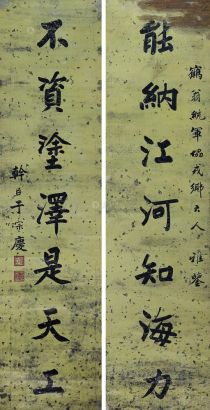 鶴翁統軍協戎鄉大人雅鑒
能納江河知海力
不資塗澤是天工
幹臣于宗慶